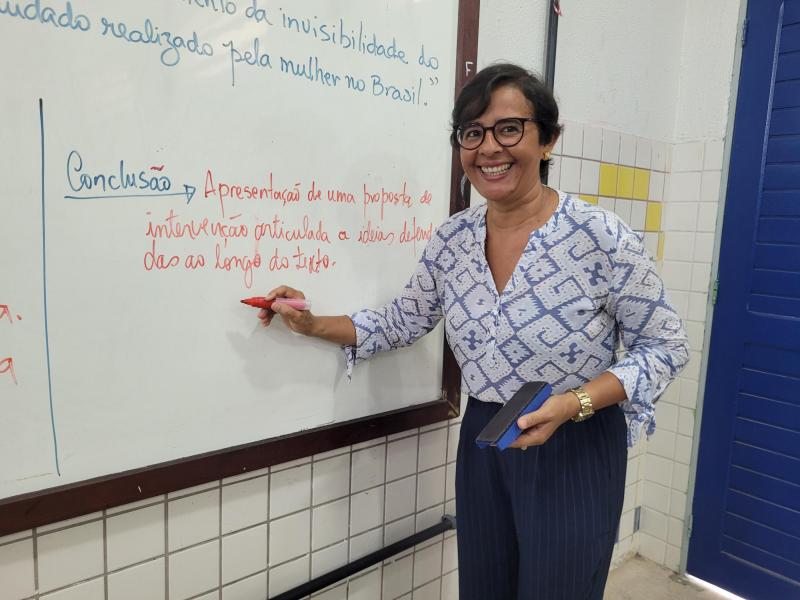 da invisibilidade do
realizado pela mulher no Brasil."
Conclusão → Apresentação de uma proposta de
intervenção articulada a ideias defend
das ao longo do texto.
a.
a